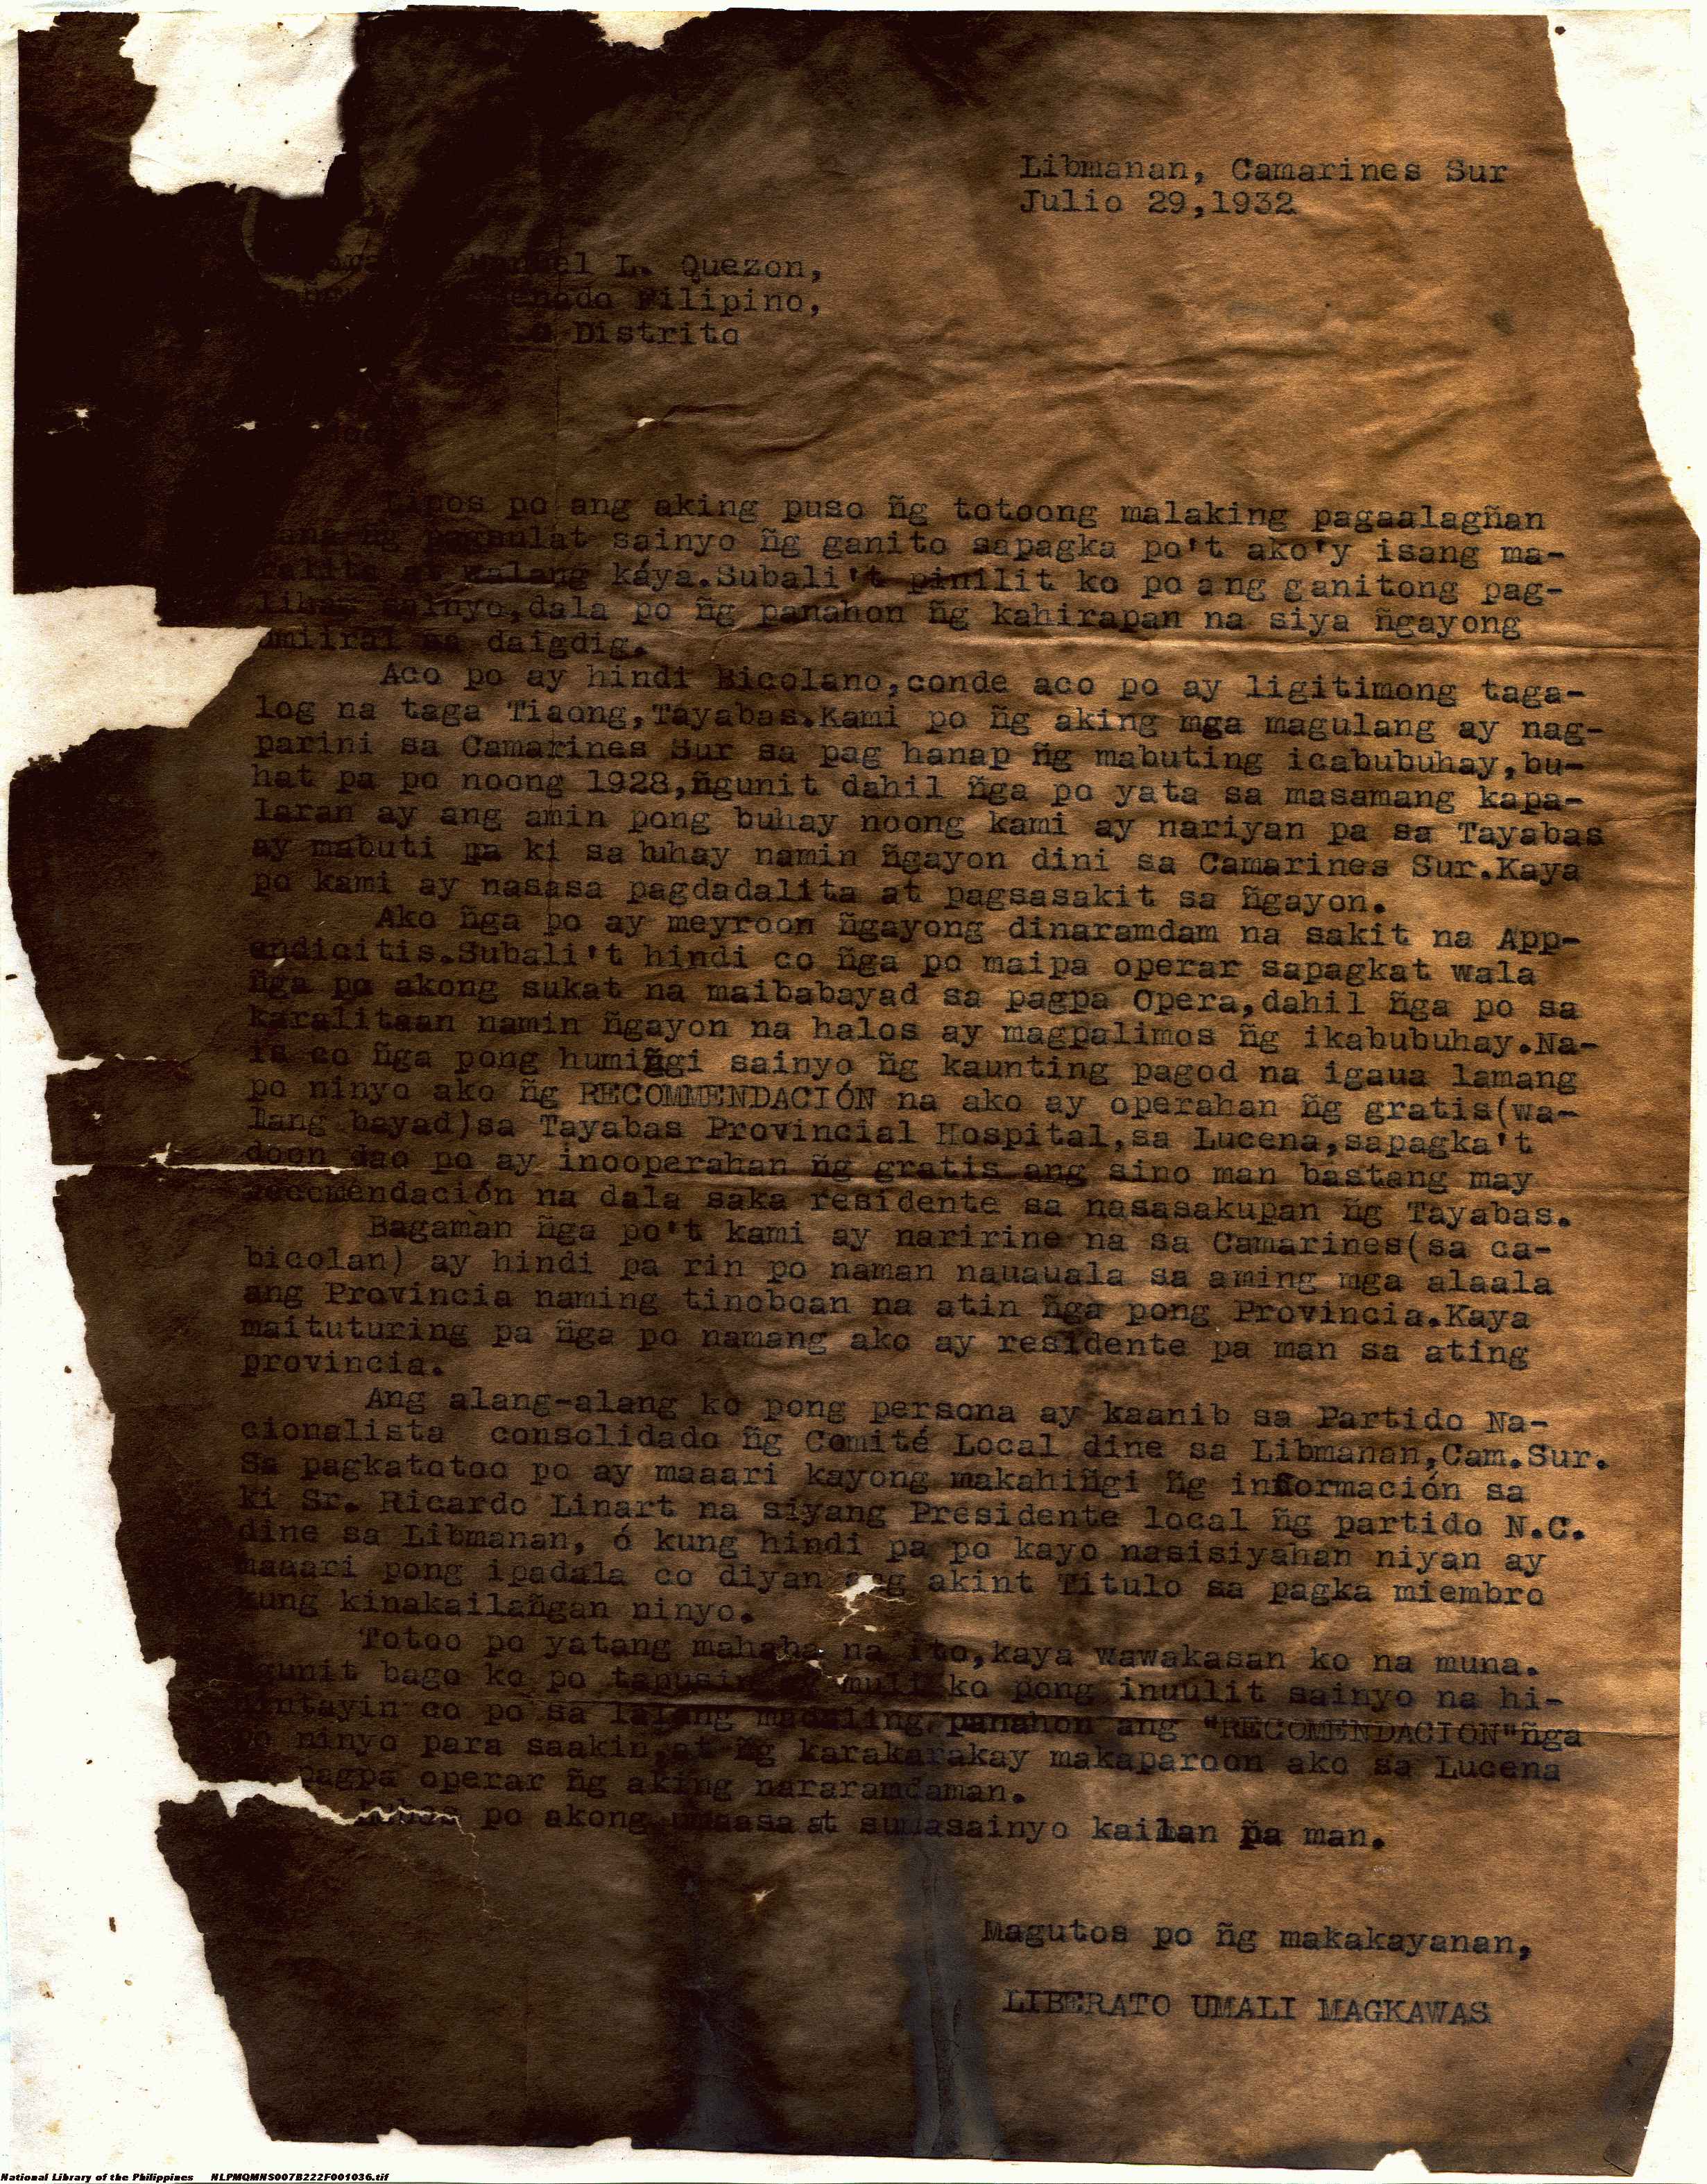 Libmanan, Camarines Sur
Julio 29,1932
Manuel L. Quezon,
Senado Filipino,
Distrito
po ang aking puso ñg totoong malaking pagaalagñan
ñg pagsulat sainyo ñg ganito sapagka po't ako'y isang ma-
walang káya.Subali't pinilit ko po ang ganitong pag-
sainyo,dala po ñg panahon ñg kahirapan na siya ñgayong
umiiral sa daigdig.
Aco po ay hindi Bicolano,conde aco po ay ligitimong taga-
log na taga Tiaong,Tayabas.Kami po ñg aking mga magulang ay nag-
parini sa Camarines Sur sa pag hanap ñg mabuting icabubuhay,bu-
hat pa po noong 1928,ñgunit dahil ñga po yata sa masamang kapa-
laran ay ang amin pong buhay noong kami ay nariyan pa sa Tayabas
ay mabuti pa ki sa buhay namin ñgayon dini sa Camarines Sur.Kaya
po kami ay nasasa pagdadalita at pagsasakit sa ñgayon.
Ako ñga po ay meyroon ñgayong dinaramdam na sakit na App-
endicitis.Subali't hindi co ñga po maipa operar sapagkat wala
ñga po akong sukat na maibabayad sa pagpa Opera,dahil ñga po sa
karalitaan namin ñgayon na halos ay magpalimos ñg ikabubuhay.Na-
is co ñga pong humiñgi sainyo ñg kaunting pagod na igaua lamang
po ninyo ako ñg RECOMMENDACIÓN na ako ay operahan ñg gratis(wa-
lang bayad)sa Tayabas Provincial Hospital,sa Lucena,sapagka't
doon dao po ay inooperahan ñg gratis ang sino man bastang may
recomendación na dala saka residente sa nasasakupan ñg Tayabas.
Bagaman ñga po't kami ay naririne na sa Camarines(sa ca-
bicolan) ay hindi pa rin po naman nauauala sa aming mga alaala
ang Provincia naming tinoboan na atin ñga pong Provincia.Kaya
maituturing pa ñga po namang ako ay residente pa man sa ating
provincia.
Ang alang-alang ko pong persona ay kaanib sa Partido Na-
cionalista consolidado ñg Comité Local dine sa Libmanan,Cam.Sur.
Sa pagkatotoo po ay maaari kayong makahiñgi ñg información sa
ki Sr. Ricardo Linart na siyang Presidente local ñg partido N.C.
dine sa Libmanan, ó kung hindi pa po kayo nasisiyahan niyan ay
maaari pong ipadala co diyan ang akint Titulo sa pagka miembro
kung kinakailañgan ninyo.
Totoo po yatang mahaba na ito,kaya wawakasan ko na muna.
ñgunit bago ko po tapusin ay muli ko pong inuulit sainyo na hi-
hintayin co po sa lalong madaling panahon ang "RECOMENDACION"ñga
po ninyo para saakin,at ñg karakarakay makaparoon ako sa Lucena
pagpa operar ñg aking nararamdaman.
po akong umaasa at sumasainyo kailan pa man.
Magutos po ñg makakayanan,
LIBERATO UMALI MAGKAWAS
National Library of the Philippines NLPMQMNS007B222F001036.tif